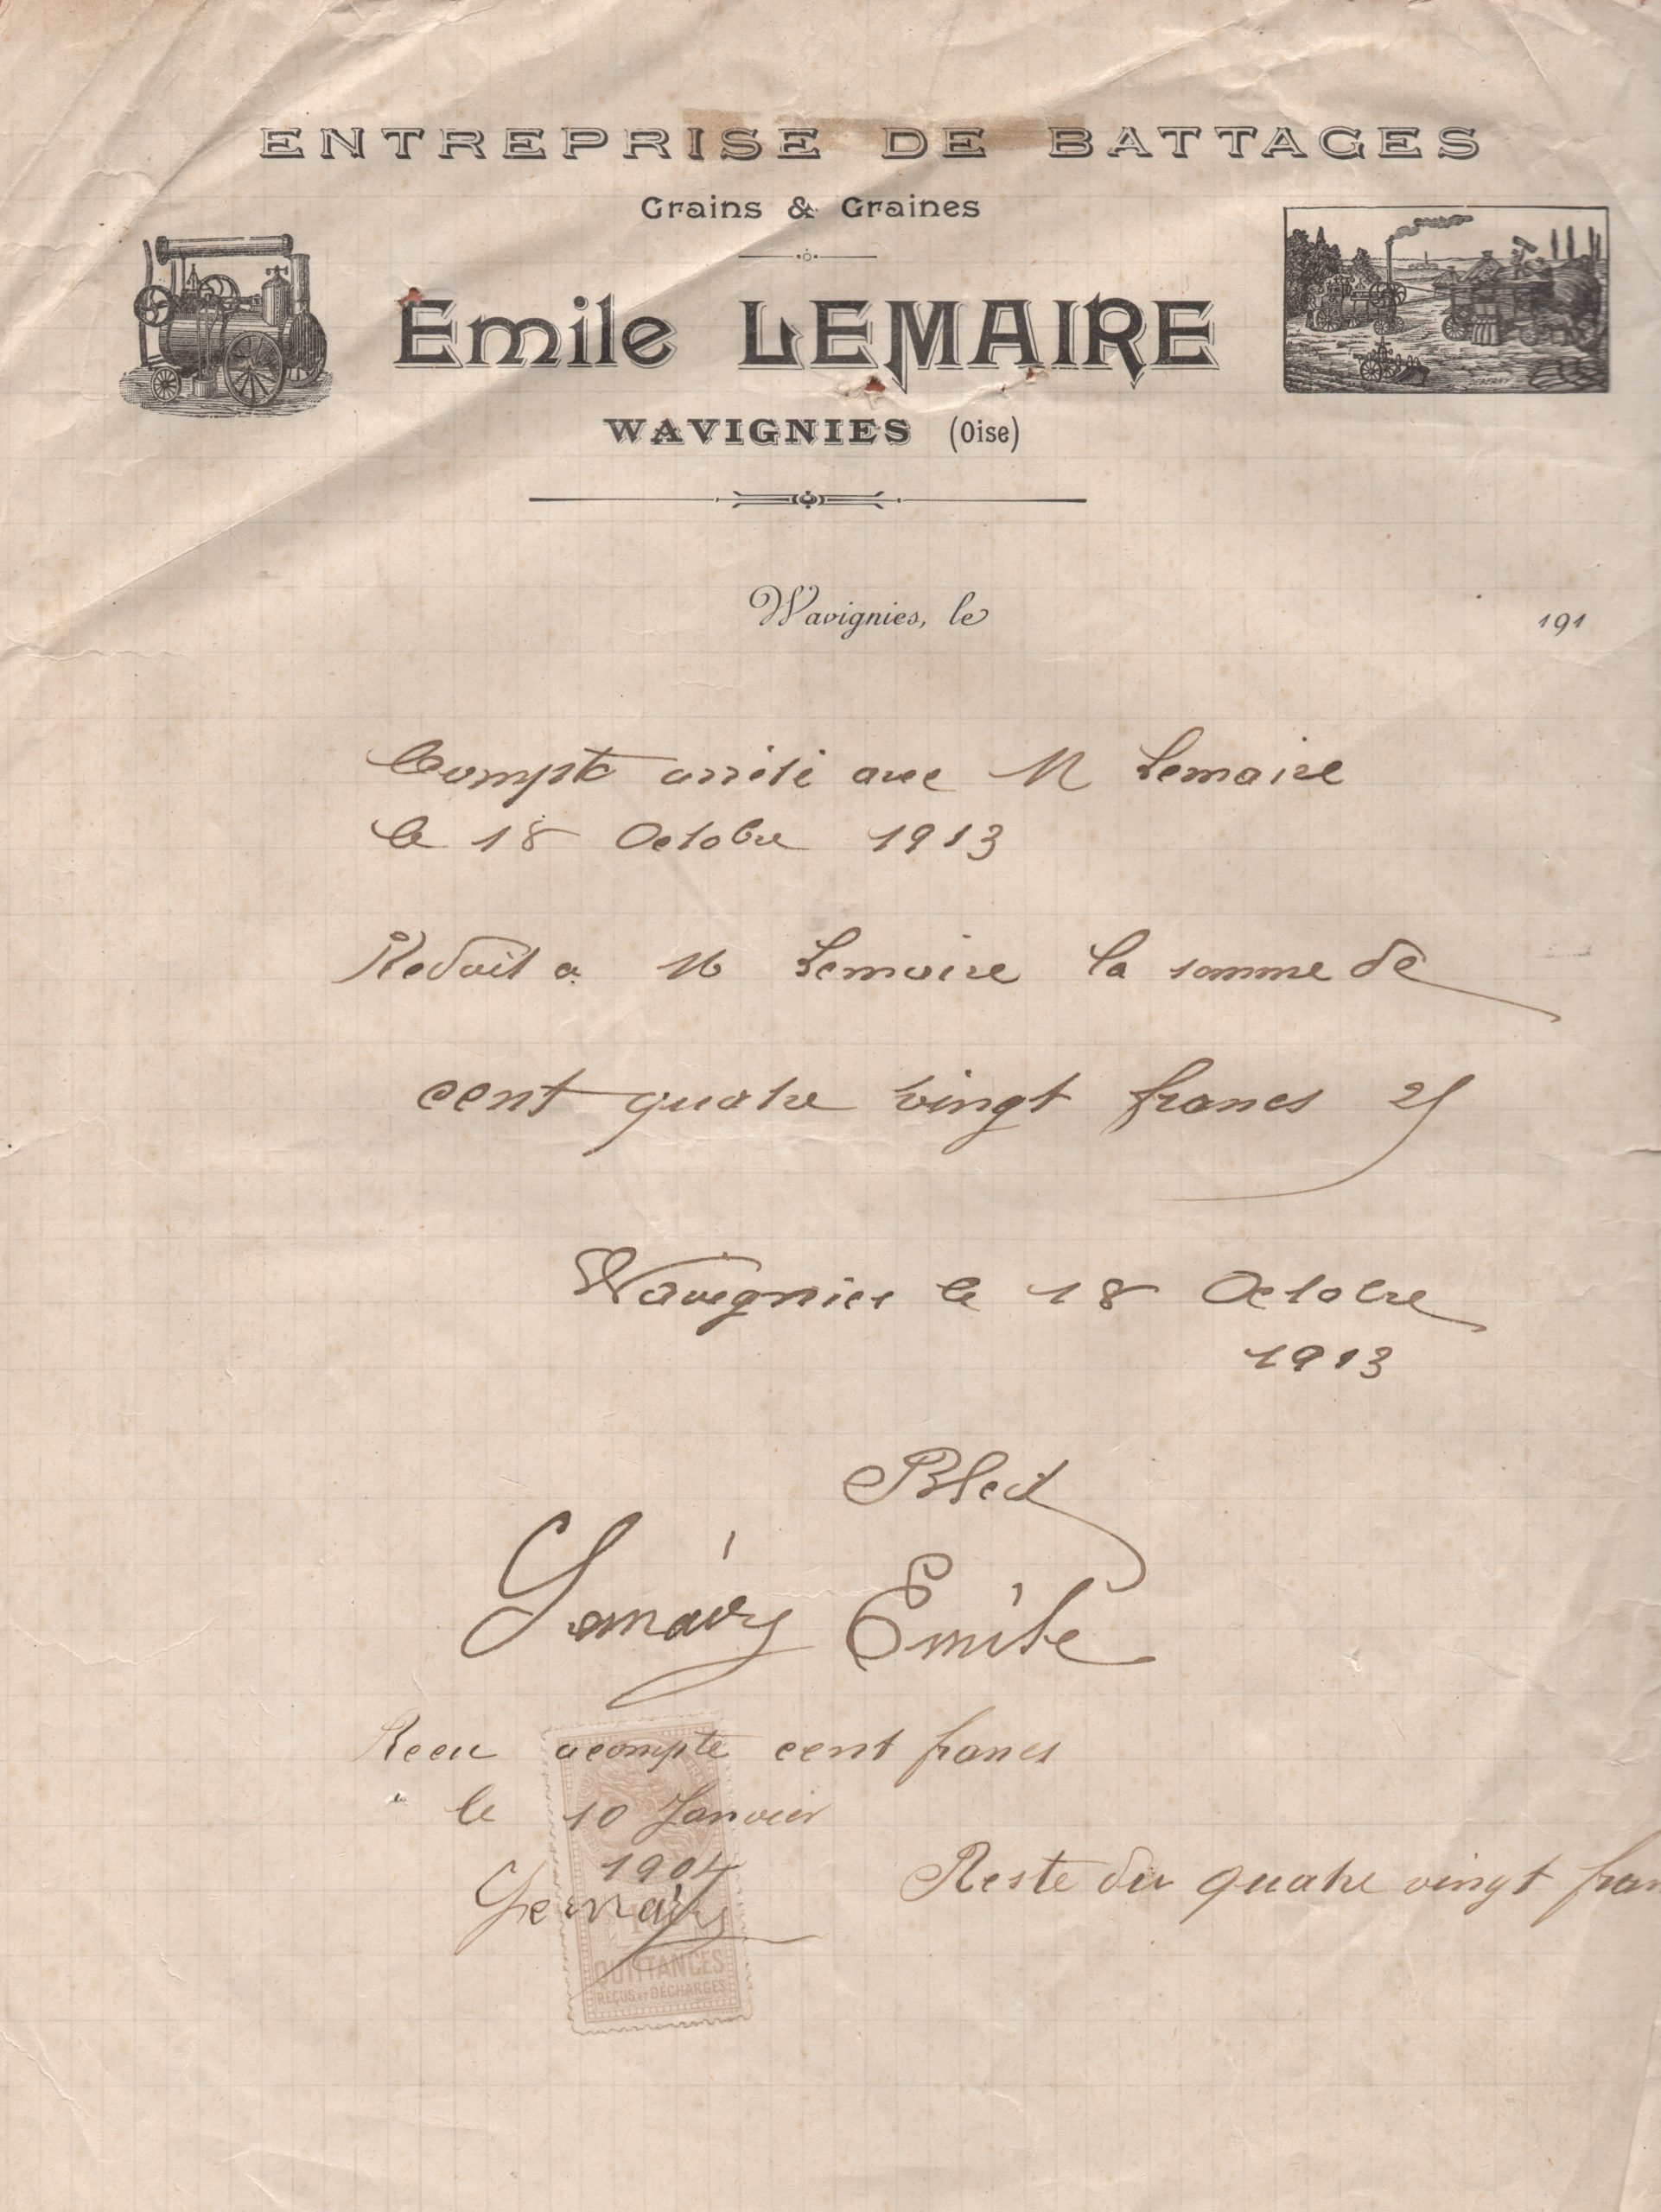 ENTREPRISE DE BATTAGES
Grains & Graines
Emile LEMAIRE
WAVIGNIES (Oise)
Wavignies, le 191
Compte arrêté avec M Lemaire
le 18 Octobre 1913
Redoit a M Lemaire la somme de
cent quatre vingt francs 25
Wavignies le 18 Octobre
1913
Bled
Lemaire Emile
Recu acompte cent francs
le 10 Janvier
1904
Lemaire
Reste du quatre vingt fran
QUITTANCES
REÇUS ET DÉCHARGES